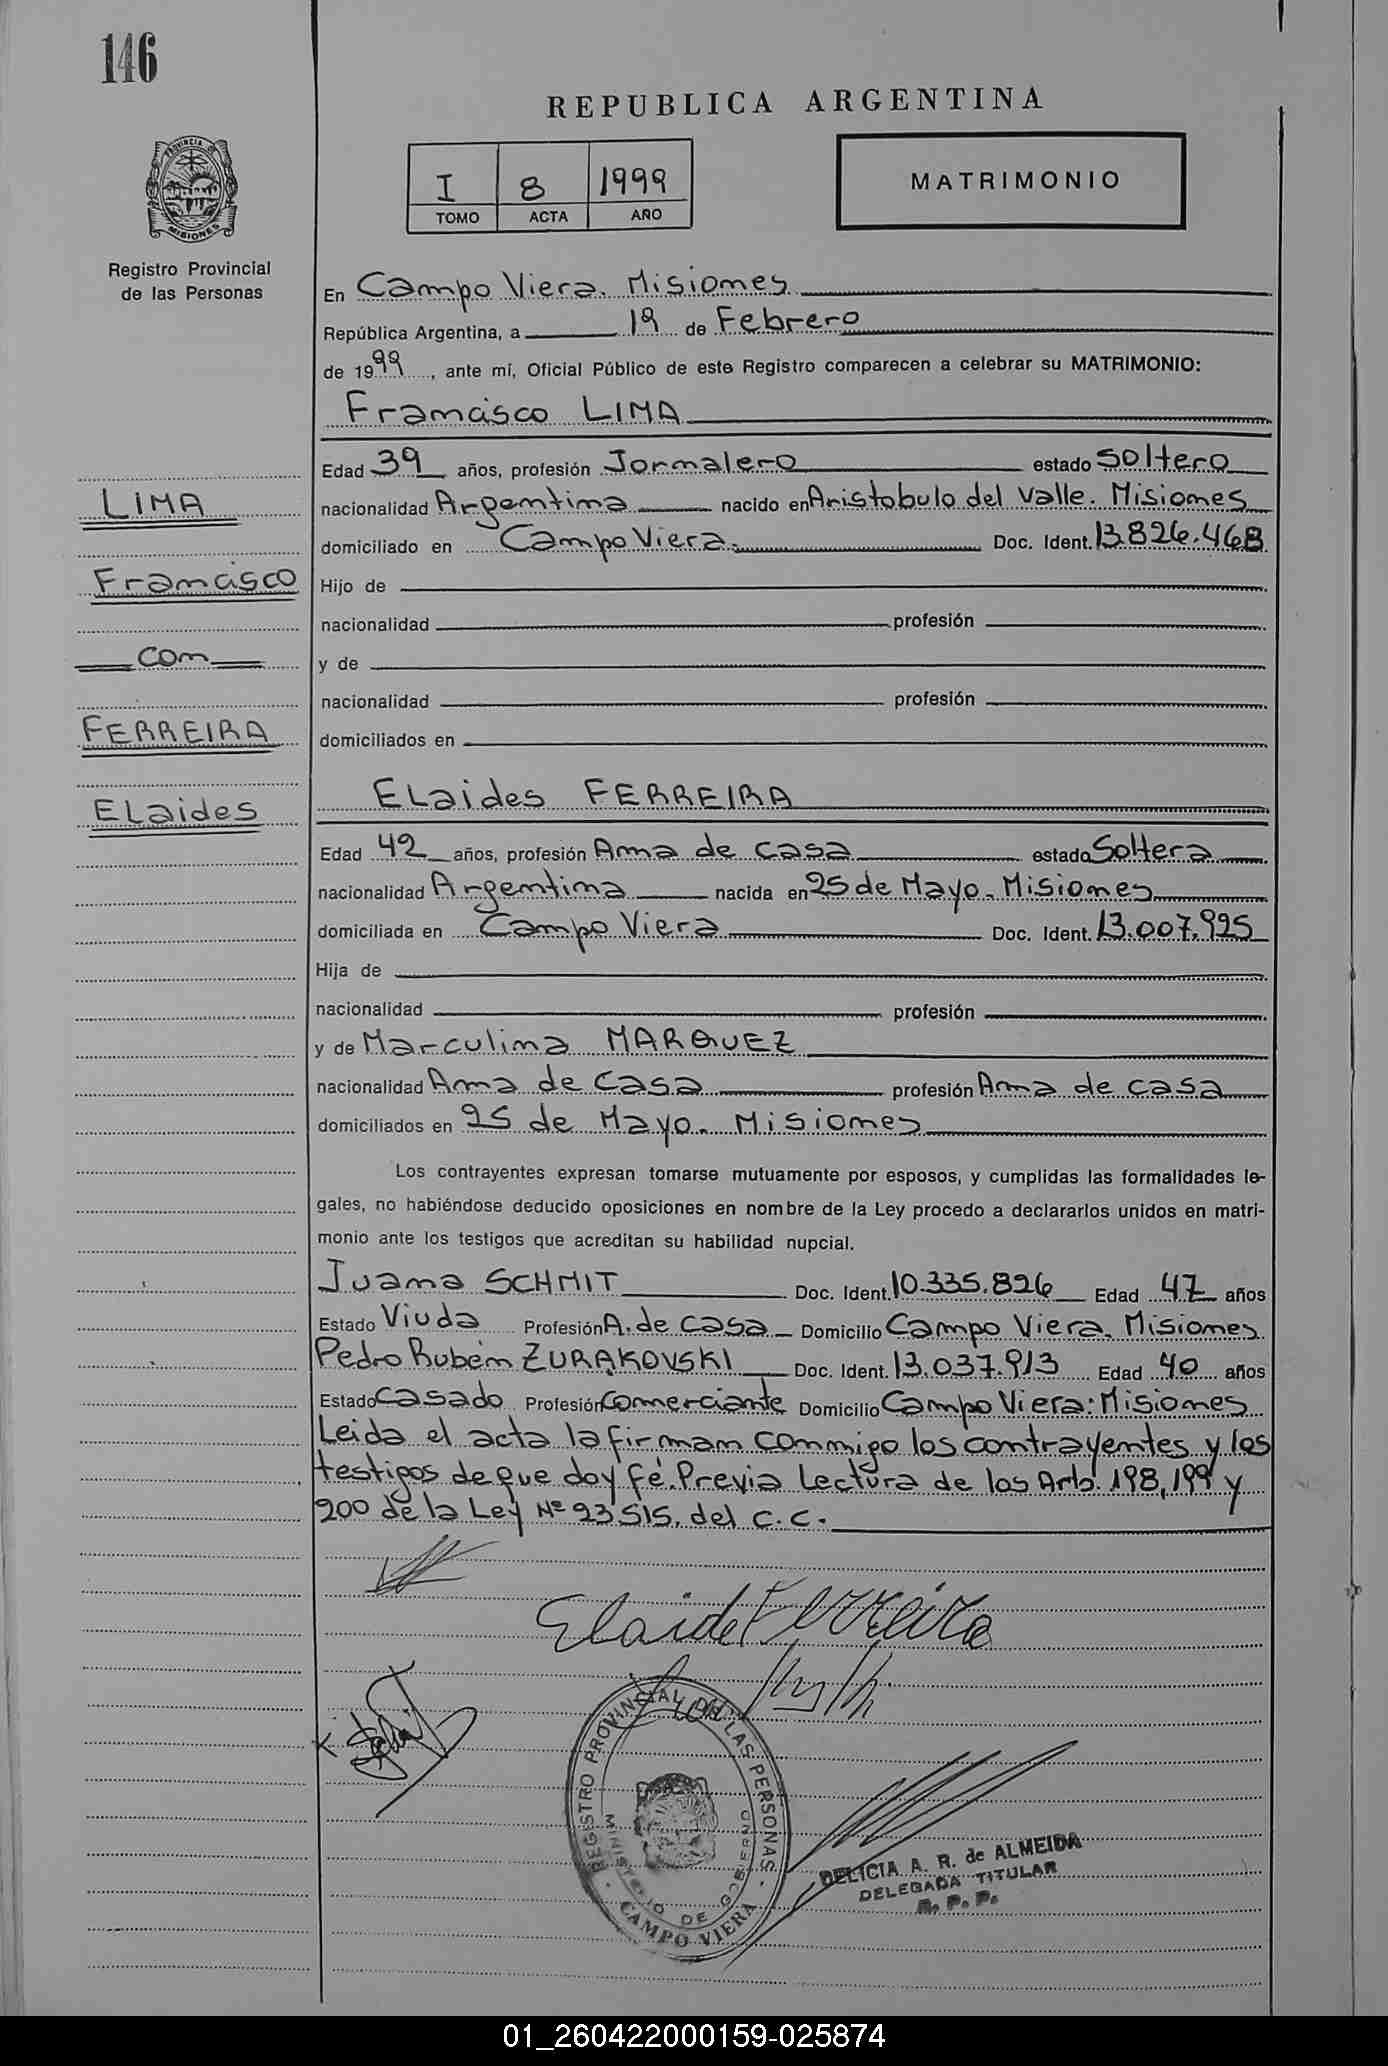 146
REPUBLICA ARGENTINA
I 8 1999
TOMO ACTA AÑO
MATRIMONIO
PROVINCIA DE
MISIONES
Registro Provincial
de las Personas
En Campo Viera. Misiones
República Argentina, a 19 de Febrero
de 1999, ante mí, Oficial Público de este Registro comparecen a celebrar su MATRIMONIO:
Francisco LIMA
Edad 39 años, profesión Jornalero estado Soltero
LIMA
nacionalidad Argentina nacido en Aristobulo del Valle. Misiones
domiciliado en Campo Viera. Doc. Ident. 13.826.468
Francisco
Hijo de
nacionalidad profesión
con
y de
nacionalidad profesión
FERREIRA
domiciliados en
ELaides
ELaides FERREIRA
Edad 42 años, profesión Ama de casa estado Soltera
nacionalidad Argentina nacida en 25 de Mayo. Misiones
domiciliada en Campo Viera Doc. Ident. 13.007.995
Hija de
nacionalidad profesión
y de Marculina MARQUEZ
nacionalidad Ama de Casa profesión Ama de casa
domiciliados en 25 de Mayo. Misiones
Los contrayentes expresan tomarse mutuamente por esposos, y cumplidas las formalidades le-
gales, no habiéndose deducido oposiciones en nombre de la Ley procedo a declararlos unidos en matri-
monio ante los testigos que acreditan su habilidad nupcial.
Juana SCHMIT Doc. Ident. 10.335.826 Edad 47 años
Estado Viuda Profesión A. de casa Domicilio Campo Viera. Misiones
Pedro Rubén ZURAKOVSKI Doc. Ident. 13.037.913 Edad 40 años
Estado Casado Profesión Comerciante Domicilio Campo Viera: Misiones
Leida el acta la firman conmigo los contrayentes y los
testigos de que doy fé. Previa Lectura de los Arts. 198, 199 y
200 de la Ley Nº 23515. del C.C.
Elaide Ferreira
REGISTRO PROVINCIAL DE LAS PERSONAS
MINISTERIO DE GOBIERNO
CAMPO VIERA
DELICIA A. R. de ALMEIDA
DELEGADA TITULAR
R. P. P.
01_260422000159-025874